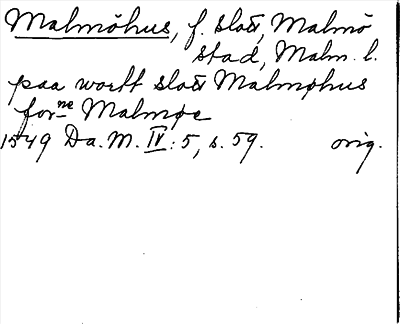 Malmöhus, f. slott, Malmö
stad, Malm. l.
paa wortt slott Malmøhus
for:ne Malmøe
1549 Da. M. IV: 5, s. 59. orig.